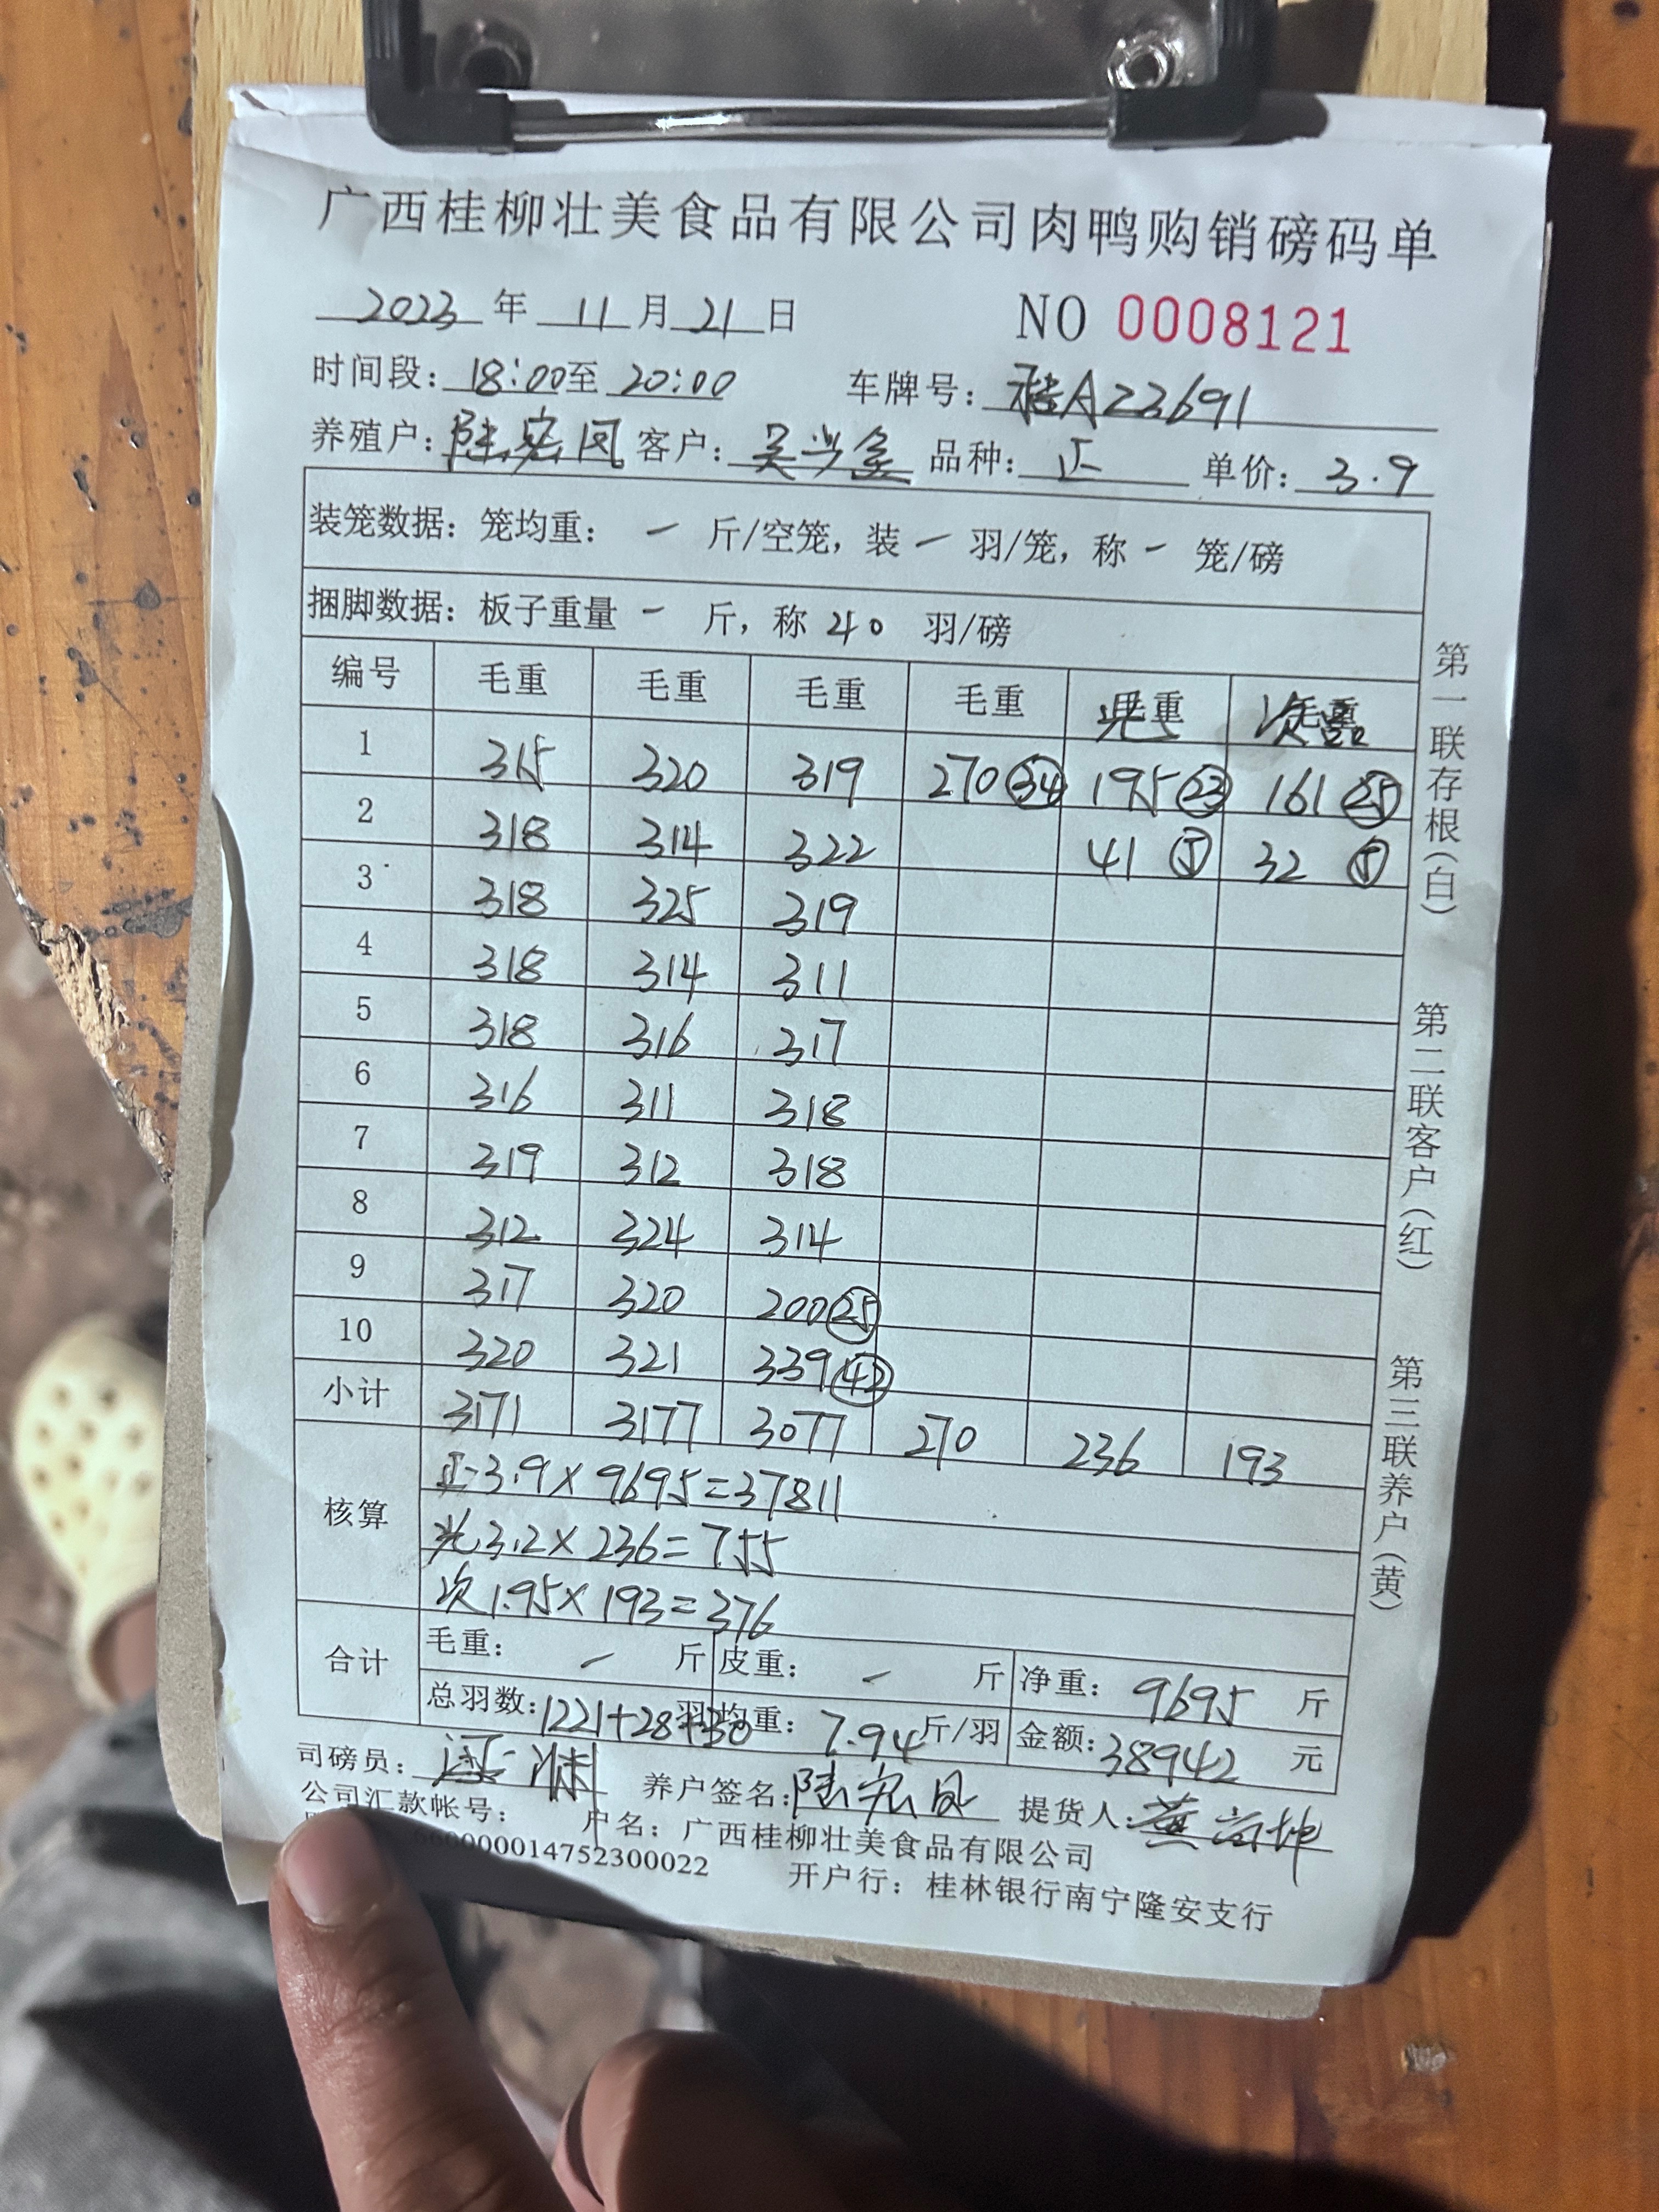 广西桂柳壮美食品有限公司肉鸭购销磅码单
2023 年 11 月 21 日 NO 0008121
时间段: 18:00至 20:00 车牌号: 桂A23691
养殖户: 陆宏凤 客户: 吴兴鑫 品种: 正 单价: 3.9
装笼数据: 笼均重: — 斤/空笼, 装 — 羽/笼, 称 — 笼/磅
捆脚数据: 板子重量 — 斤, 称 40 羽/磅
编号 毛重 毛重 毛重 毛重 光 毛重 次 毛重
1 315 320 319 270 34 195 23 161 25
2 318 314 322 41 5 32 5
3 318 325 319
4 318 314 311
5 318 316 317
6 316 311 318
7 319 312 318
8 312 324 314
9 317 320 200 25
10 320 321 339 42
小计 3171 3177 3077 270 236 193
核算
正 3.9×9695=37811
光 3.2×236=755
次 1.95×193=376
合计
毛重: — 斤 皮重: — 斤 净重: 9695 斤
总羽数: 1221+28+30 羽 均重: 7.94 斤/羽 金额: 38942 元
司磅员: 养户签名: 陆宏凤 提货人: 黄
公司汇款帐号: 户名: 广西桂柳壮美食品有限公司
000000014752300022 开户行: 桂林银行南宁隆安支行
第一联存根(白) 第二联客户(红) 第三联养户(黄)